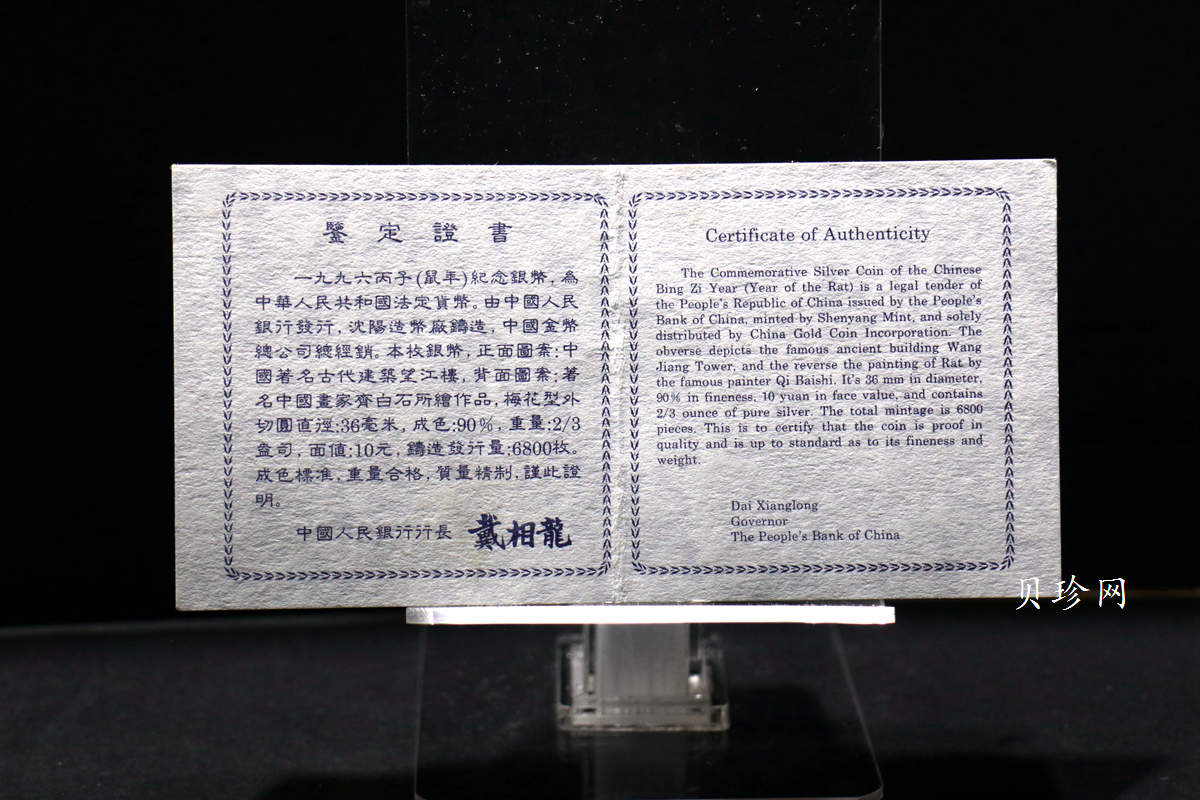 鑒定證書
一九九六丙子(鼠年)紀念銀幣,為
中華人民共和國法定貨幣。由中國人民
銀行發行,沈陽造幣廠鑄造,中國金幣
總公司總經銷。本枚銀幣,正面圖案:中
國著名古代建築望江樓,背面圖案:著
名中國畫家齊白石所繪作品,梅花型外
切圓直徑:36毫米,成色:90%,重量:2/3
盎司,面值:10元,鑄造發行量:6800枚。
成色標准,重量合格,質量精制,謹此證
明。
中國人民銀行行長 戴相龍
Certificate of Authenticity
The Commemorative Silver Coin of the Chinese
Bing Zi Year (Year of the Rat) is a legal tender of
the People's Republic of China issued by the People's
Bank of China, minted by Shenyang Mint, and solely
distributed by China Gold Coin Incorporation. The
obverse depicts the famous ancient building Wang
Jiang Tower, and the reverse the painting of Rat by
the famous painter Qi Baishi. It's 36 mm in diameter,
90% in fineness, 10 yuan in face value, and contains
2/3 ounce of pure silver. The total mintage is 6800
pieces. This is to certify that the coin is proof in
quality and is up to standard as to its fineness and
weight.
Dai Xianglong
Governor
The People's Bank of China
贝珍网